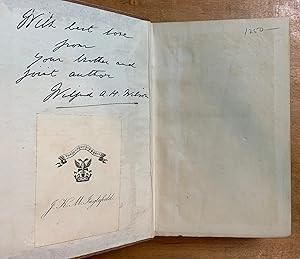 With best love
from
your brother and
joint author
Wilfrid A. H. Wilson
J. K. M. Inglefield
1250 —